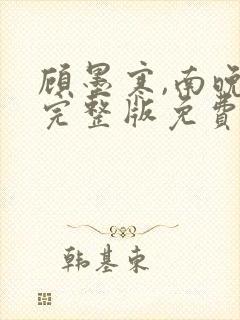 顾墨寒,南晚
完整版免費
韩基东